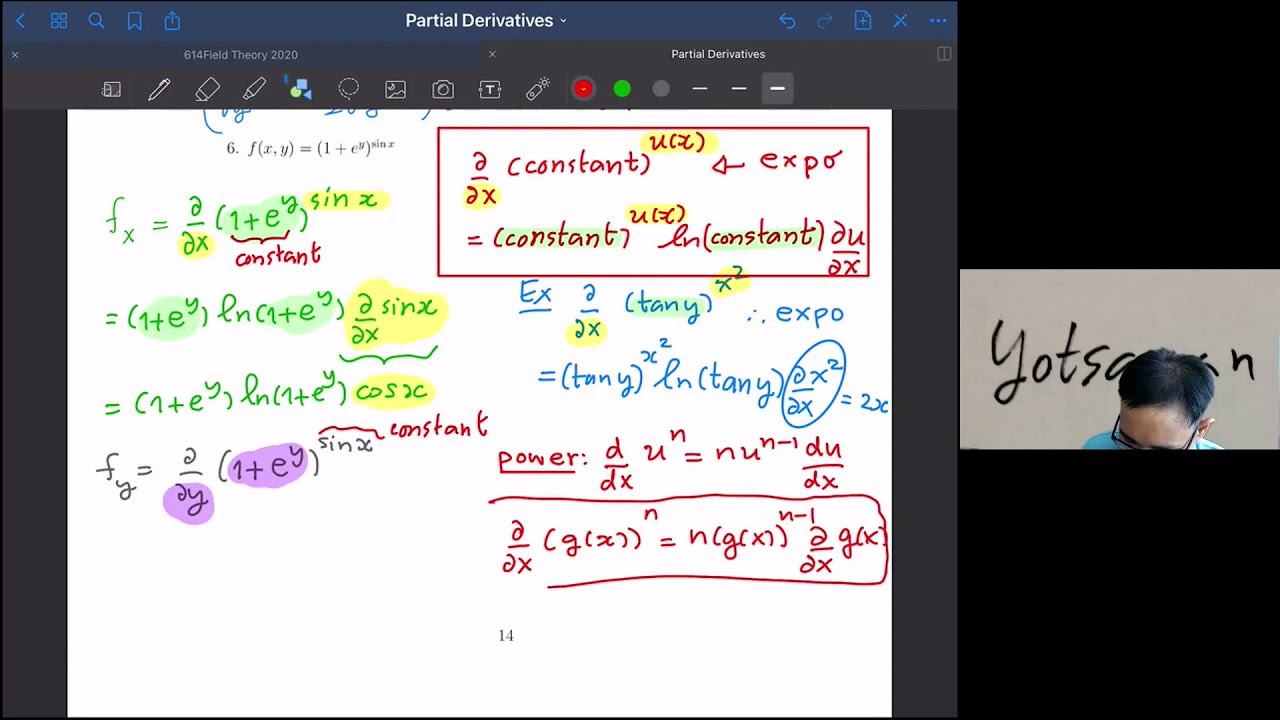 Partial Derivatives
614Field Theory 2020
Partial Derivatives
6. f(x, y) = (1 + e^y)^{sin x}
f_x = ∂/∂x (1+e^y)^{sin x}
constant
= (1+e^y) ln(1+e^y) ∂/∂x sinx
= (1+e^y) ln(1+e^y) cosx
f_y = ∂/∂y (1+e^y)^{sinx}
constant
∂/∂x (constant)^{u(x)} ← expo
= (constant)^{u(x)} ln(constant) ∂u/∂x
Ex ∂/∂x (tany)^{x^2} ∴ expo
= (tany)^{x^2} ln(tany) ∂x^2/∂x = 2x
power: d/dx u^n = nu^{n-1} du/dx
∂/∂x (g(x))^n = n(g(x))^{n-1} ∂/∂x g(x)
14